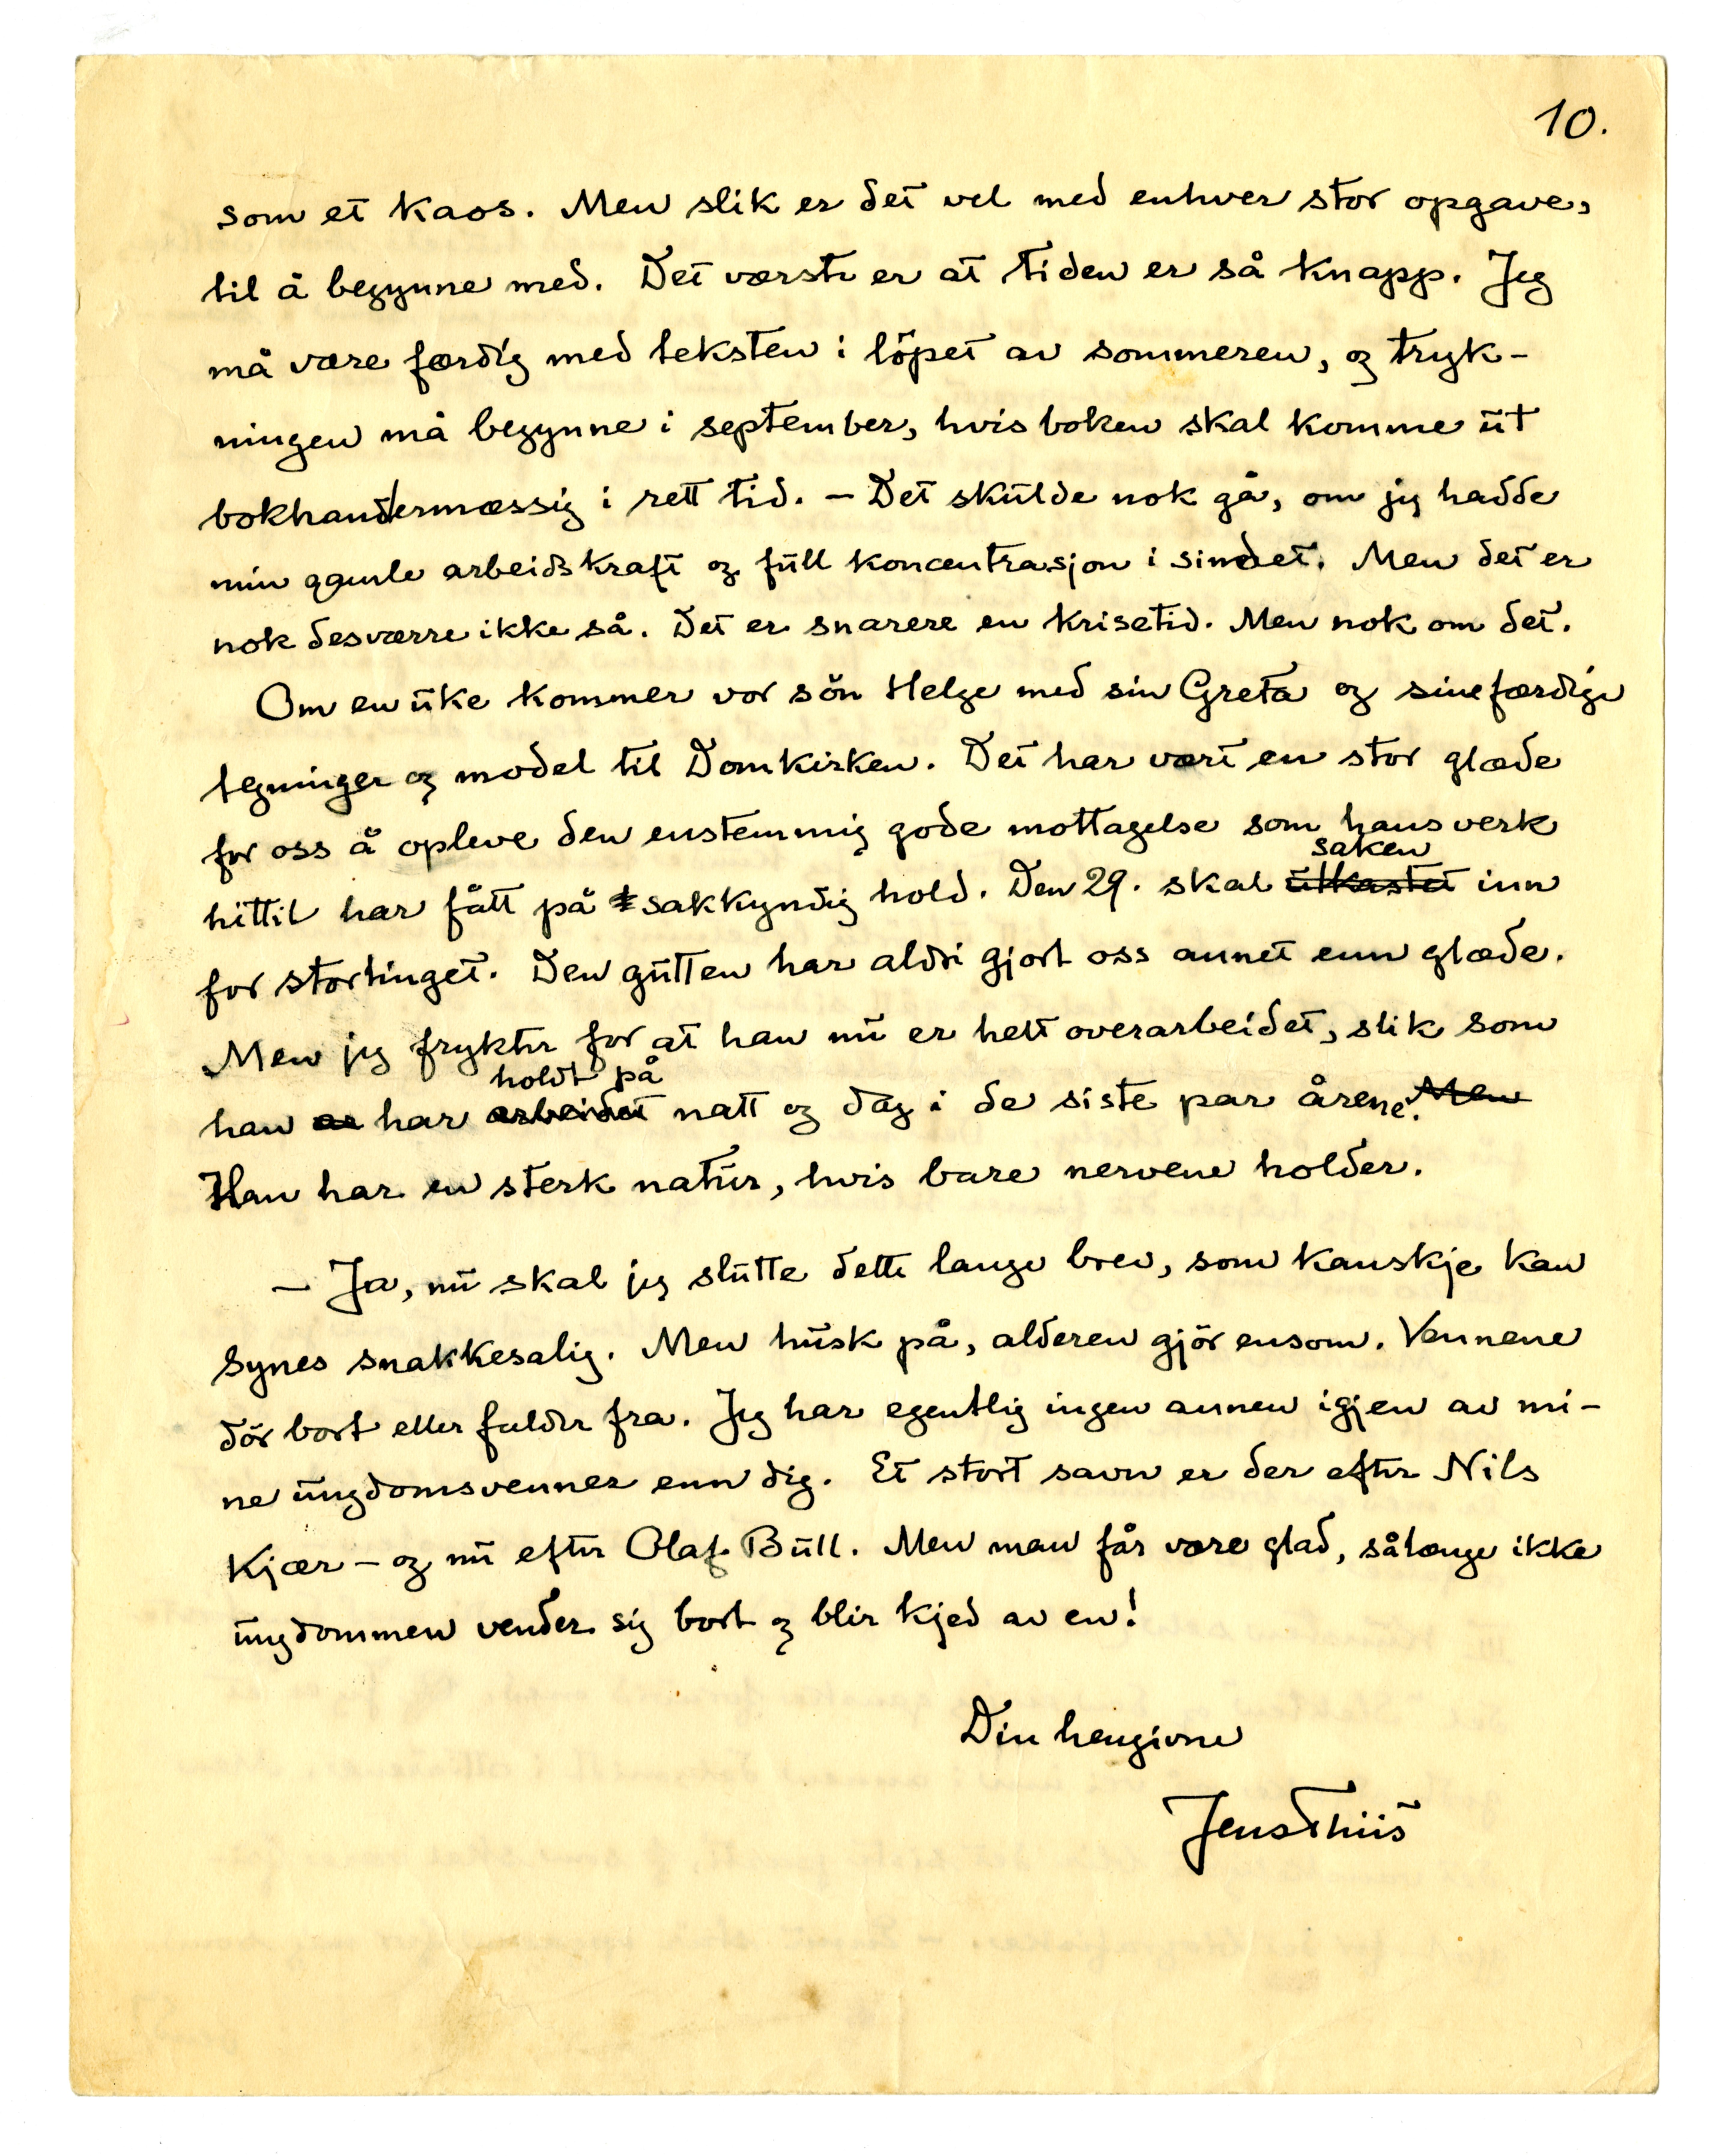 10.
som et kaos. Men slik er det vel med enhver stor opgave,
til å begynne med. Det værste er at tiden er så knapp. Jeg
må være færdig med teksten i löpet av sommeren, og tryk-
ningen må begynne i september, hvis boken skal komme ut
bokhandlermæssig i rett tid. – Det skulde nok gå, om jeg hadde
min gamle arbeidskraft og full koncentrasjon i sindet. Men det er
nok desværre ikke så. Det er snarere en krisetid. Men nok om det.
Om en uke kommer vor sön Helge med sin Greta og sine færdige
tegninger og model til Domkirken. Det har vært en stor glæde
for oss å opleve den enstemmig gode mottagelse som hans verk
saken
hittil har fått på t sakkyndig hold. Den 29. skal utkastet inn
for stortinget. Den gutten har aldri gjort oss annet enn glæde.
Men jeg frykter for at han nu er helt overarbeidet, slik som
holdt på
han er har arbeidet natt og dag i de siste par årene. Men
Han har en sterk natur, hvis bare nervene holder.
– Ja, nu skal jeg slutte dette lange brev, som kanskje kan
synes snakkesalig. Men husk på, alderen gjör ensom. Vennene
dör bort eller falder fra. Jeg har egentlig ingen annen igjen av mi-
ne ungdomsvenner enn dig. Et stort savn er der efter Nils
Kjær – og nu efter Olaf Bull. Men man får være glad, sålænge ikke
ungdommen vender sig bort og blir kjed av en!
Din hengivne
Jens Thiis